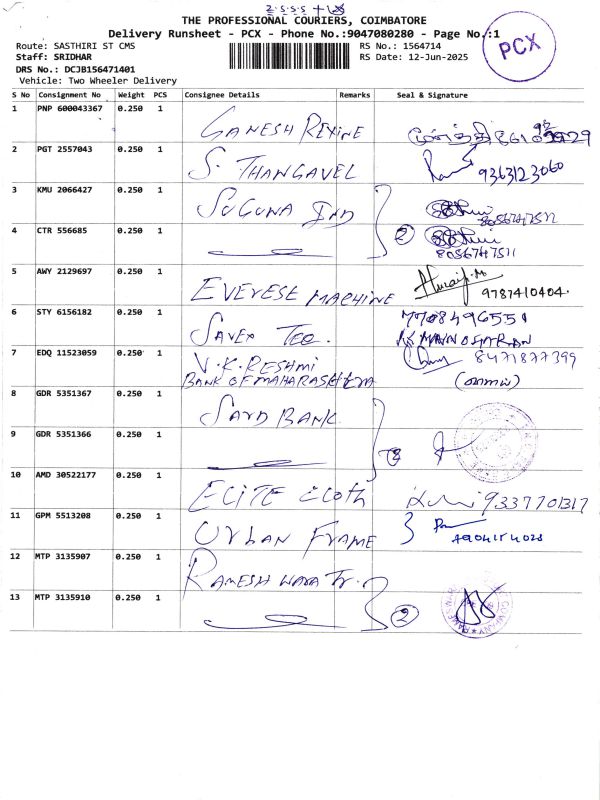 2.5.5.5 +
THE PROFESSIONAL COURIERS, COIMBATORE
Delivery Runsheet - PCX - Phone No.:9047080280 - Page No.:1
PCX
Route: SASTHIRI ST CMS
RS No.: 1564714
Staff: SRIDHAR
RS Date: 12-Jun-2025
DRS No.: DCJB156471401
Vehicle: Two Wheeler Delivery
S No Consignment No Weight PCS Consignee Details Remarks Seal & Signature
1 PNP 600043367 0.250 1 GANESH REXINE
2 PGT 2557043 0.250 1 S. THANGAVEL 9363123060
3 KMU 2066427 0.250 1 SUGUNA IND 8056747511
4 CTR 556685 0.250 1 2 8056747511
5 AWY 2129697 0.250 1 EVERESE MACHINE 9787410404
6 STY 6156182 0.250 1 SAVEX TEO. 7708496551
MANOHARAN
7 EDQ 11523059 0.250 1 V.K. RESHMI 8471877399
BANK OF MAHARASHTRA
8 GDR 5351367 0.250 1 BANK
9 GDR 5351366 0.250 1
10 AMD 30522177 0.250 1 ELITE CLOTH 9337701317
11 GPM 5513208 0.250 1 URBAN FRAME
12 MTP 3135907 0.250 1 RAMESH Tr.
13 MTP 3135910 0.250 1 2